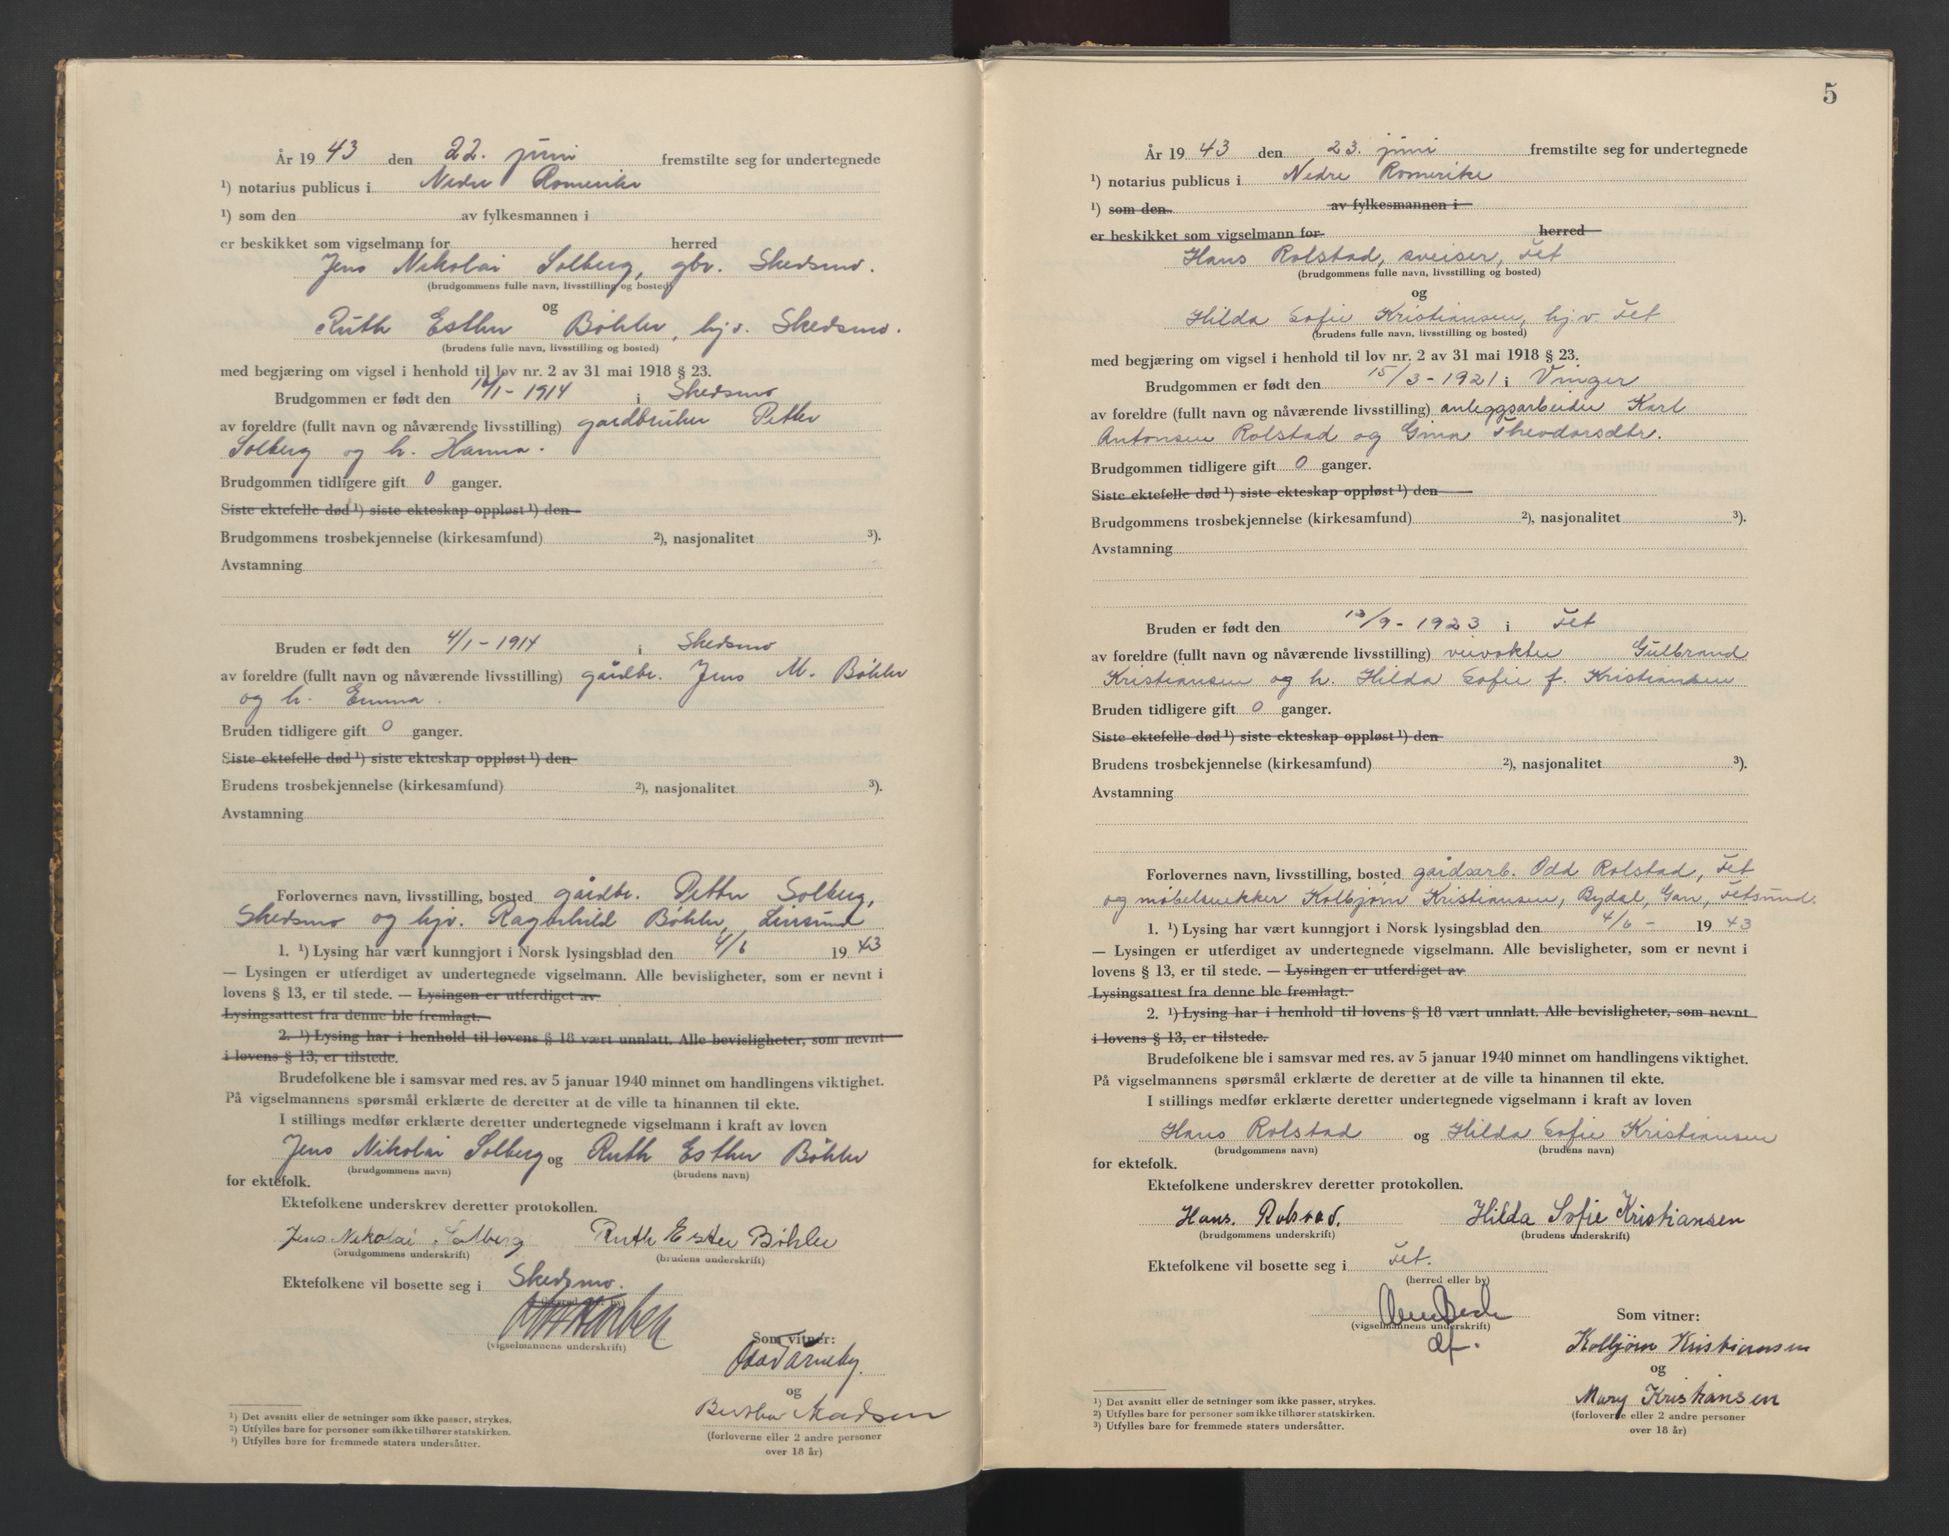 År 19 43 den 22. juni fremstilte seg for undertegnede
¹) notarius publicus i Nedre Romerike
¹) som den av fylkesmannen i
er beskikket som vigselmann for herred
Jens Nikolai Solberg, gbr. Skedsmo.
(brudgommens fulle navn, livsstilling og bosted)
og
Ruth Esther Bøhler, hj.v. Skedsmo.
(brudens fulle navn, livsstilling og bosted)
med begjæring om vigsel i henhold til lov nr. 2 av 31 mai 1918 § 23.
Brudgommen er født den /1 - 1914 i Skedsmo
av foreldre (fullt navn og nåværende livsstilling) gardbruker Petter
Solberg og h. Hanna.
Brudgommen tidligere gift 0 ganger.
Siste ektefelle død ¹) siste ekteskap oppløst ¹) den
Brudgommens trosbekjennelse (kirkesamfund) ²), nasjonalitet ³).
Avstamning
Bruden er født den 4/1 - 1914 i Skedsmo
av foreldre (fullt navn og nåværende livsstilling) gårdbr. Jens M. Bøhler
og h. Emma.
Bruden tidligere gift 0 ganger.
Siste ektefelle død ¹) siste ekteskap oppløst ¹) den
Brudens trosbekjennelse (kirkesamfund) ²), nasjonalitet ³).
Avstamning
Forlovernes navn, livsstilling, bosted gårdbr. Petter Solberg,
Skedsmo og hjv. Ragnhild Bøhler, Lirsund
1. ¹) Lysing har vært kunngjort i Norsk lysingsblad den 4/6 19 43
— Lysingen er utferdiget av undertegnede vigselmann. Alle bevisligheter, som er nevnt i
lovens § 13, er til stede. — Lysingen er utferdiget av
Lysingsattest fra denne ble fremlagt.
2. ¹) Lysing har i henhold til lovens § 18 vært unnlatt. Alle bevisligheter, som nevnt
i lovens § 13, er tilstede.
Brudefolkene ble i samsvar med res. av 5 januar 1940 minnet om handlingens viktighet.
På vigselmannens spørsmål erklærte de deretter at de ville ta hinannen til ekte.
I stillings medfør erklærte deretter undertegnede vigselmann i kraft av loven
Jens Nikolai Solberg og Ruth Esther Bøhler
(brudgommens navn) (brudens navn)
for ektefolk.
Ektefolkene underskrev deretter protokollen.
Jens Nikolai Solberg Ruth Ester Bøhler
(brudgommens underskrift) (brudens underskrift)
Ektefolkene vil bosette seg i Skedsmo.
(herred eller by)
(vigselmannens underskrift)
Som vitner:
og
Madsen
(forloverne eller 2 andre personer
over 18 år)
¹) Det avsnitt eller de setninger som ikke passer, strykes.
²) Utfylles bare for personer som ikke tilhører statskirken.
³) Utfylles bare for fremmede staters undersåtter.
5
År 19 43 den 23. juni fremstilte seg for undertegnede
¹) notarius publicus i Nedre Romerike
¹) som den av fylkesmannen i
er beskikket som vigselmann for herred
Hans Rolstad, sveiser, Fet
(brudgommens fulle navn, livsstilling og bosted)
og
Hilda Sofie Kristiansen, hj.v. Fet
(brudens fulle navn, livsstilling og bosted)
med begjæring om vigsel i henhold til lov nr. 2 av 31 mai 1918 § 23.
Brudgommen er født den 15/3 - 1921 i Vinger
av foreldre (fullt navn og nåværende livsstilling) anleggsarbeider Karl
Antonsen Rolstad og Gina Theodorsdtr.
Brudgommen tidligere gift 0 ganger.
Siste ektefelle død ¹) siste ekteskap oppløst ¹) den
Brudgommens trosbekjennelse (kirkesamfund) ²), nasjonalitet ³).
Avstamning
Bruden er født den 13/9 - 1923 i Fet
av foreldre (fullt navn og nåværende livsstilling) veivokter Gulbrand
Kristiansen og h. Hilda Sofie f. Kristiansen
Bruden tidligere gift 0 ganger.
Siste ektefelle død ¹) siste ekteskap oppløst ¹) den
Brudens trosbekjennelse (kirkesamfund) ²), nasjonalitet ³).
Avstamning
Forlovernes navn, livsstilling, bosted gårdsarb. Odd Rolstad, Fet
og møbelsnekker Kolbjørn Kristiansen, Bydal, Gan, Fetsund.
1. ¹) Lysing har vært kunngjort i Norsk lysingsblad den 4/6 - 19 43
— Lysingen er utferdiget av undertegnede vigselmann. Alle bevisligheter, som er nevnt i
lovens § 13, er til stede. — Lysingen er utferdiget av
Lysingsattest fra denne ble fremlagt.
2. ¹) Lysing har i henhold til lovens § 18 vært unnlatt. Alle bevisligheter, som nevnt
i lovens § 13, er tilstede.
Brudefolkene ble i samsvar med res. av 5 januar 1940 minnet om handlingens viktighet.
På vigselmannens spørsmål erklærte de deretter at de ville ta hinannen til ekte.
I stillings medfør erklærte deretter undertegnede vigselmann i kraft av loven
Hans Rolstad og Hilda Sofie Kristiansen
(brudgommens navn) (brudens navn)
for ektefolk.
Ektefolkene underskrev deretter protokollen.
Hans. Rolstad. Hilda Sofie Kristiansen
(brudgommens underskrift) (brudens underskrift)
Ektefolkene vil bosette seg i Fet.
(herred eller by)
(vigselmannens underskrift)
Som vitner:
Kolbjørn Kristiansen
og
Mary Kristiansen
(forloverne eller 2 andre personer
over 18 år)
¹) Det avsnitt eller de setninger som ikke passer, strykes.
²) Utfylles bare for personer som ikke tilhører statskirken.
³) Utfylles bare for fremmede staters undersåtter.